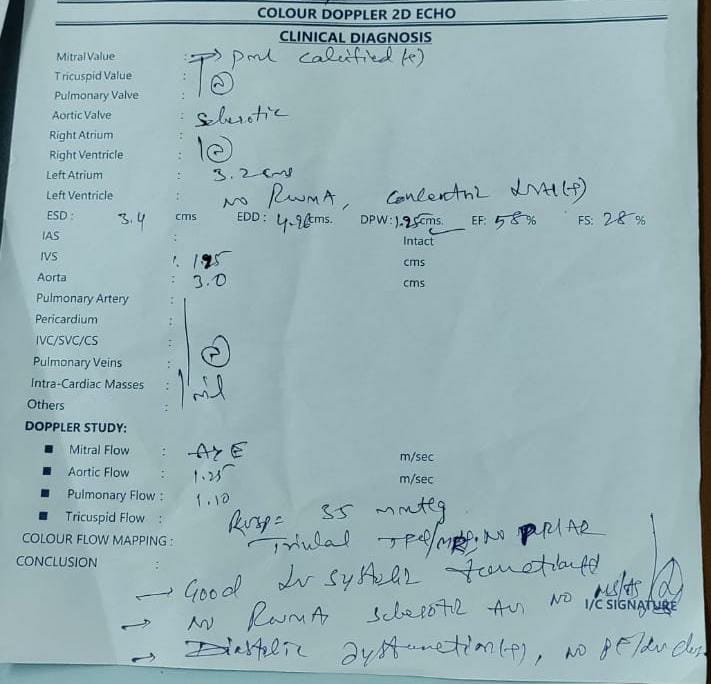 COLOUR DOPPLER 2D ECHO
CLINICAL DIAGNOSIS
Mitral Value : → PML calcified (+)
Tricuspid Value : (N)
Pulmonary Valve :
Aortic Valve : Sclerotic
Right Atrium :
Right Ventricle : (N)
Left Atrium : 3.2 cms
Left Ventricle : NO RWMA, Concentric LVH (+)
ESD : 3.4 cms EDD : 4.96 cms. DPW : 1.25 cms. EF: 58 % FS: 28 %
IAS : Intact
IVS : 1.25 cms
Aorta : 3.0 cms
Pulmonary Artery :
Pericardium :
IVC/SVC/CS :
Pulmonary Veins : (N)
Intra-Cardiac Masses : nil
Others :
DOPPLER STUDY:
■ Mitral Flow : A>E m/sec
■ Aortic Flow : 1.25 m/sec
■ Pulmonary Flow : 1.10
■ Tricuspid Flow : RVSP= 35 mmHg
COLOUR FLOW MAPPING : Trivial NO PR/AR
CONCLUSION :
→ Good LV systolic function
→ No RWMA sclerotic AV, NO MS/AS
I/C SIGNATURE
→ Diastolic dysfunction (+), NO PE/